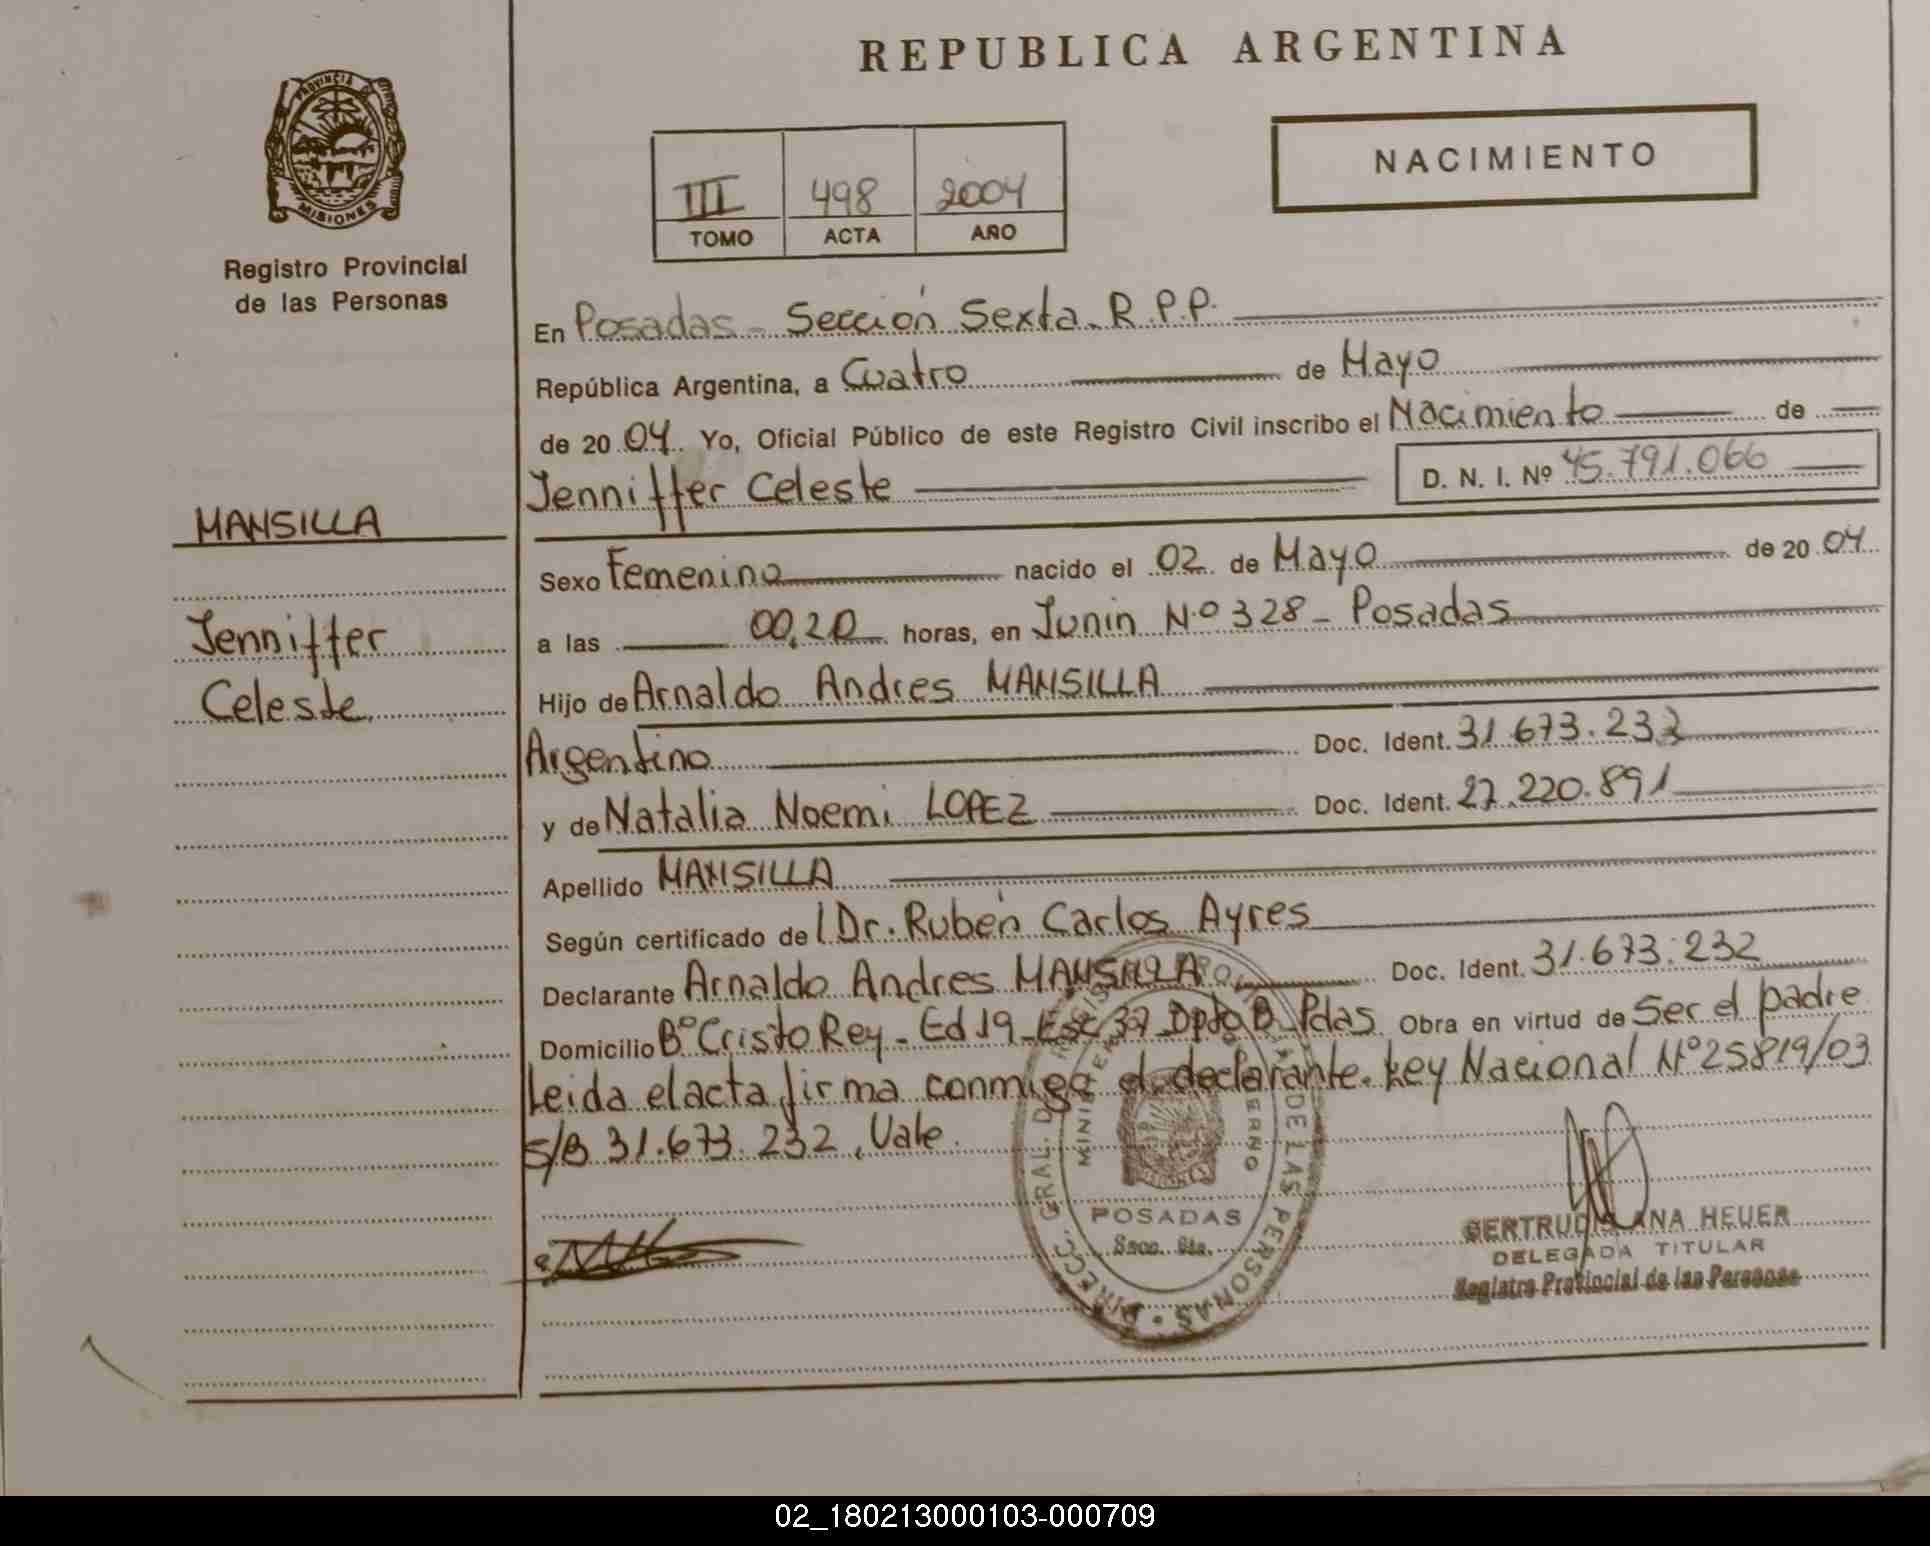 REPUBLICA ARGENTINA
PROVINCIA DE
MISIONES
Registro Provincial
de las Personas
III 498 2004
TOMO ACTA AÑO
NACIMIENTO
En Posadas - Sección Sexta. R.P.P.
República Argentina, a Cuatro de Mayo
de 2004. Yo, Oficial Público de este Registro Civil inscribo el Nacimiento de
Jenniffer Celeste D. N. I. Nº 45.791.066
MANSILLA
Jenniffer
Celeste
Sexo Femenino nacido el 02 de Mayo de 2004
a las 00,20 horas, en Junin Nº 328 - Posadas
Hijo de Arnaldo Andres MANSILLA
Argentino Doc. Ident. 31.673.232
y de Natalia Noemi LOPEZ Doc. Ident. 27.220.891
Apellido MANSILLA
Según certificado de l Dr. Rubén Carlos Ayres
Declarante Arnaldo Andres MANSILLA Doc. Ident. 31.673.232
Domicilio Bº Cristo Rey - Ed 19 - Esc 37 Dpto B - Pdas. Obra en virtud de Ser el padre
Leida el acta firma conmigo el declarante. Ley Nacional Nº 25819/03
S/B 31.673.232, Vale.
DIRECC. GRAL. DE LAS PERSONAS
POSADAS
Secc. 6ta.
GERTRUDIS ANA HEUER
DELEGADA TITULAR
Registro Provincial de las Personas
02_180213000103-000709